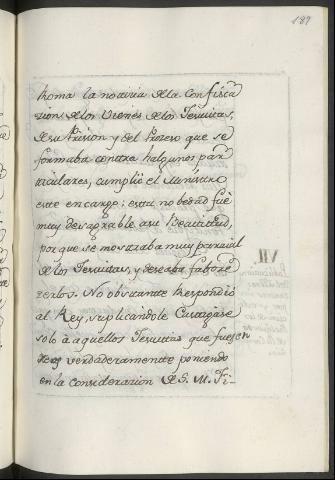 187
Roma la noticia de la Confisca
zion de los Vienes de los Jesuitas,
de su Prision y del Prozeso que se
formaba contra halgunos par
ticulares, cumplio el Ministro
este encargo; esta novedad fue
muy desagrable a su Beatitud,
porque se mostraba muy parzial
de los Jesuitas, y deseaba faboré
zerlos. No obstante Respondió
al Rey, suplicandole Castigase
solo à aquellos Jesuitas que fuesen
Reos verdaderamente poniendo
en la Considerazion de S. M. Fi-
VII.